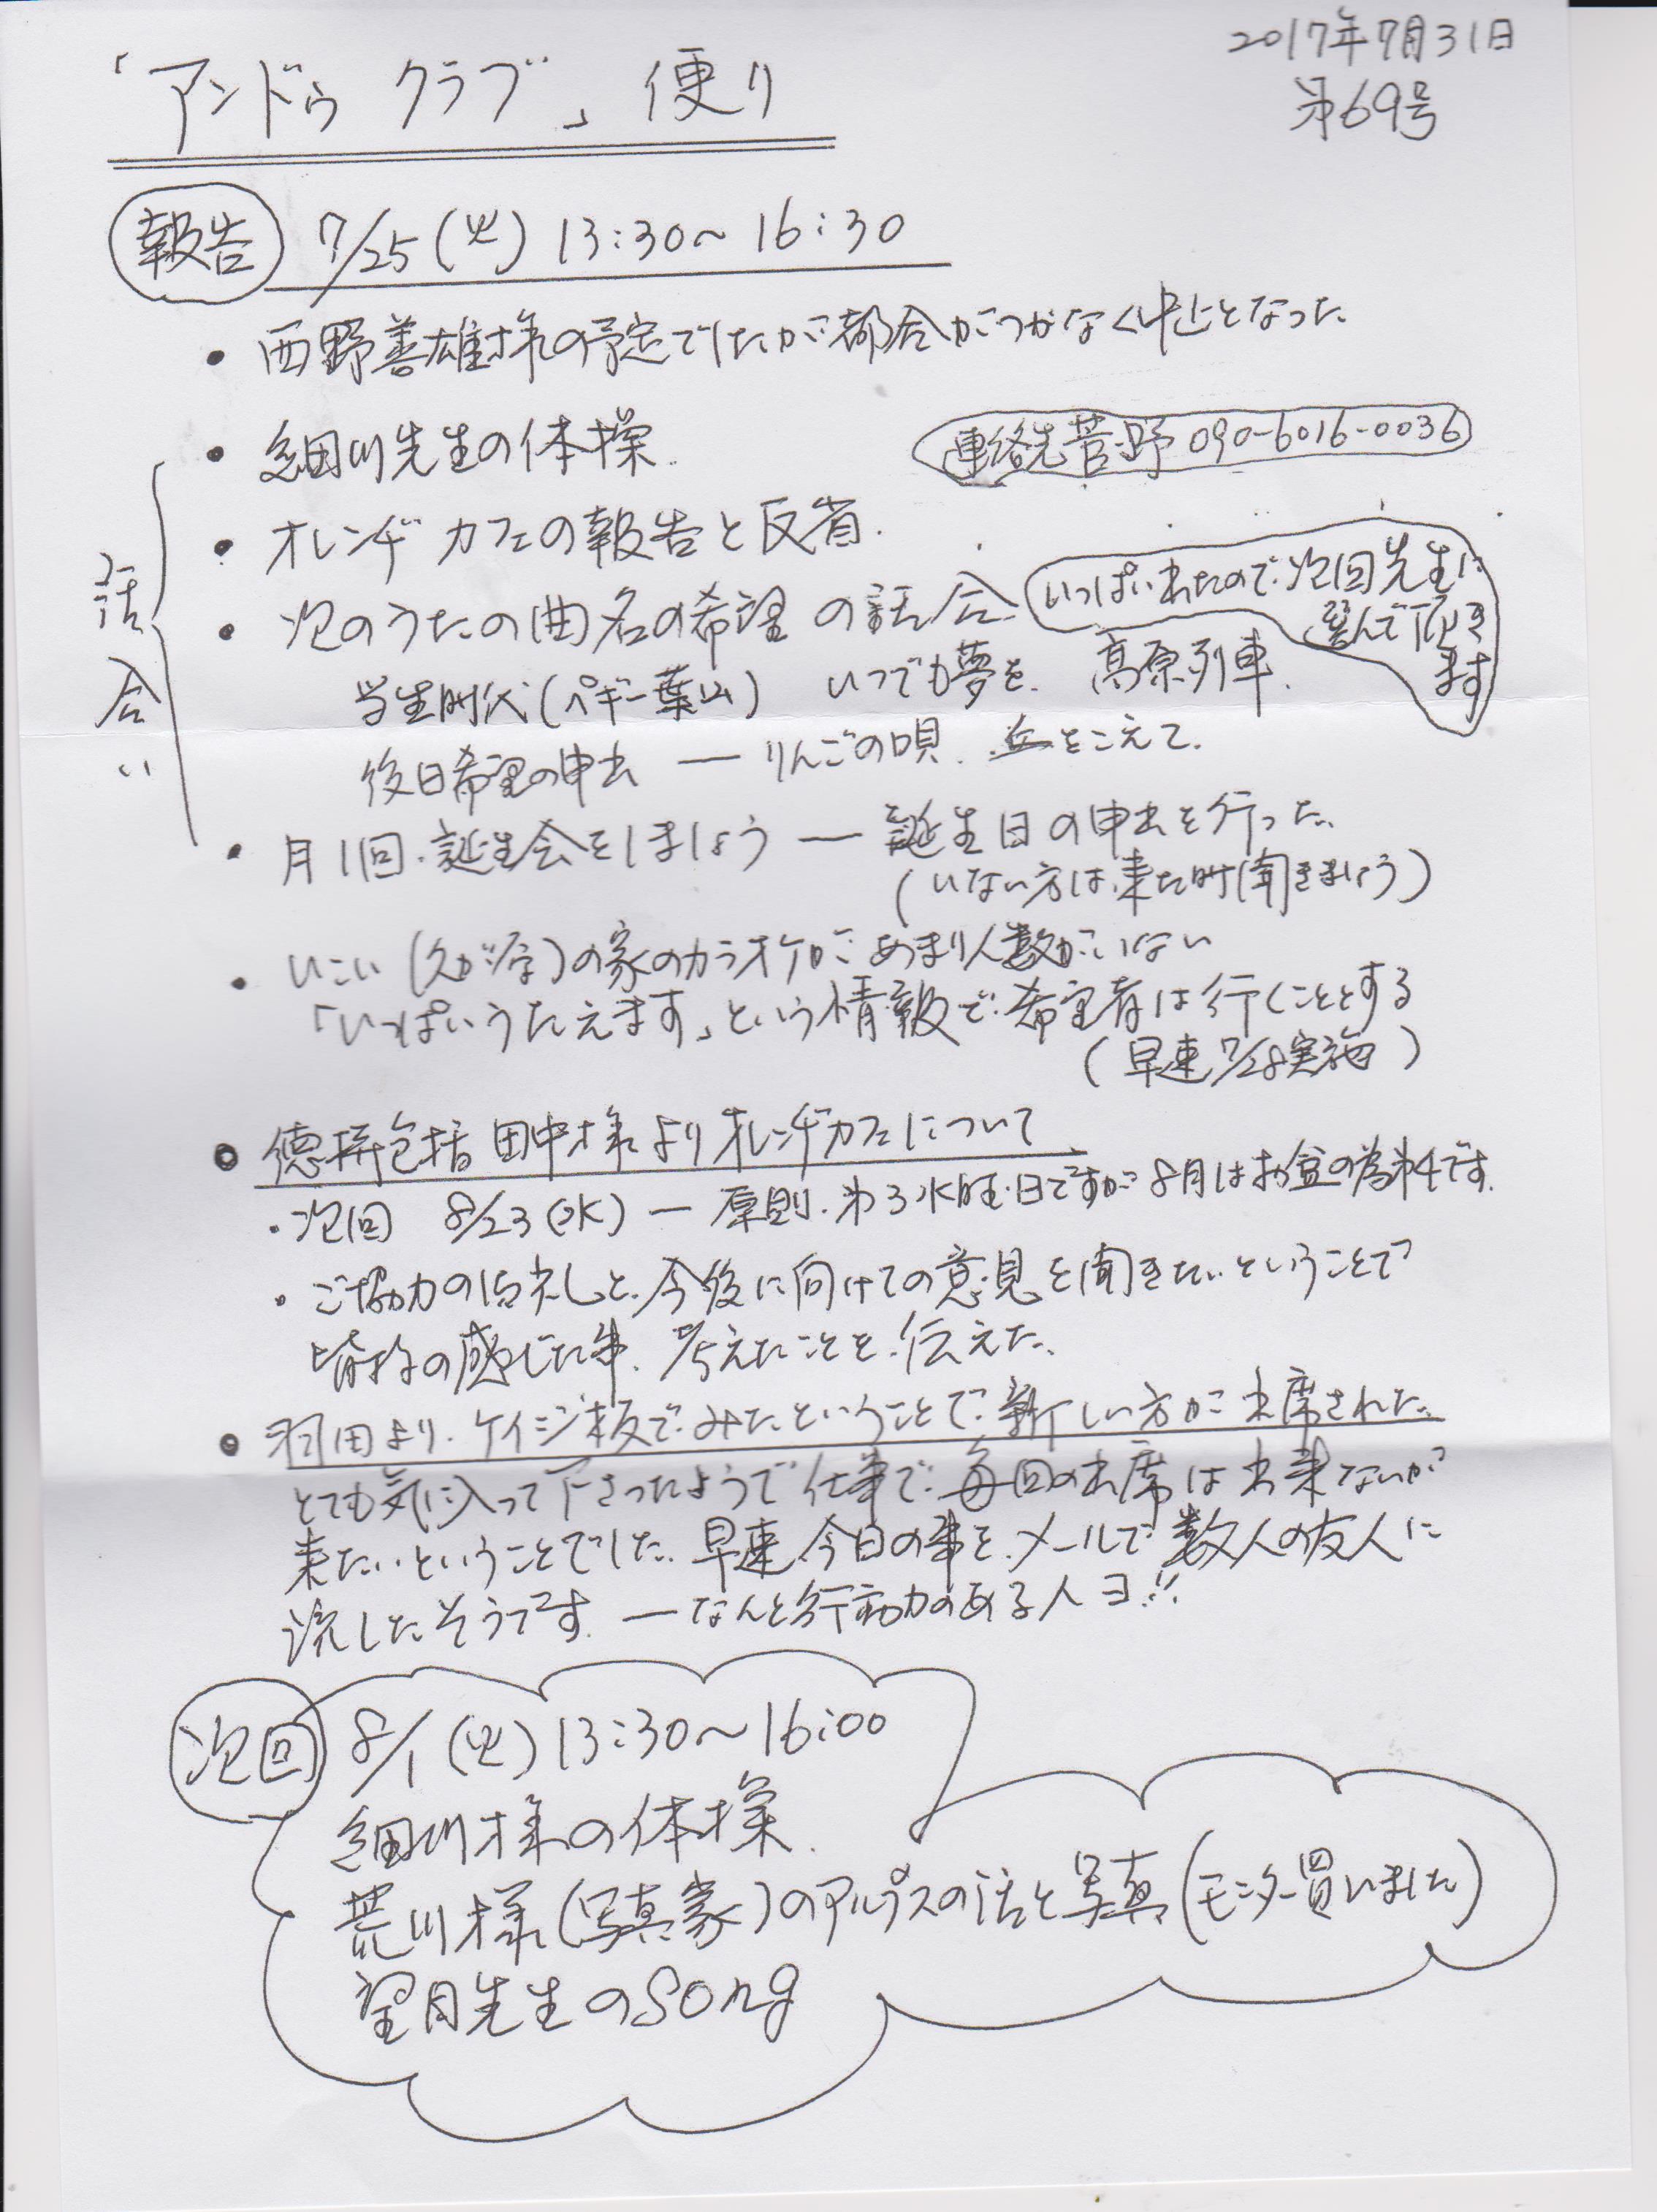 2017年7月31日
「アンドゥ クラブ」便り
第69号
報告 7/25(火) 13:30〜16:30
・西野善雄様の予定でしたが都合がつかなく中止となった
・細川先生の体操.
連絡先菅野 090-6016-0036
話合い
・オレンヂ カフェの報告と反省.
・次のうたの曲名の希望 の話合.
いっぱい出たので次回先生に
選んで頂き
ます
学生時代(ペギー葉山) いつでも夢を. 高原列車.
後日希望の申出 ー りんごの唄. 丘をこえて.
・月1回.誕生会をしましょう ー 誕生日の申出を行った.
(いない方は.来た時聞きましょう)
・いこい(久が原)の家のカラオケが あまり人数がいない
「いっぱいうたえます」という情報で.希望者は行くこととする
(早速7/28実施)
・徳持包括 田中様よりオレンヂカフェについて
・次回 8/23(水) ー 原則.第3水曜日ですが8月はお盆の為第4です.
・ご協力のお礼と.今後に向けての意見を聞きたいということで
皆様の感じた事.考えたことを.伝えた.
・羽田より.ケイジ板で.みたということで.新しい方が出席された.
とても気に入って下さったようで仕事で.毎回の出席は出来ないが
来たいということでした.早速今日の事を.メールで数人の友人に
流したそうです. ーなんと行動力のある人ヨ!!
次回 8/1(火)13:30〜16:00
細川様の体操.
荒川様(写真家)のアルプスの話と写真(モニター買いました)
望月先生のSong